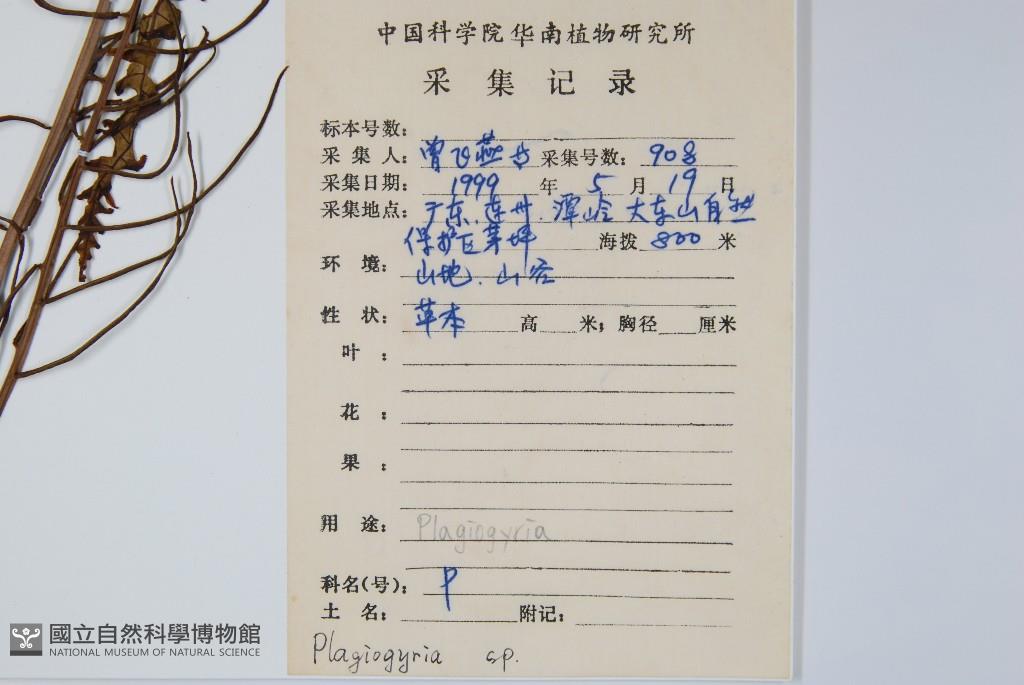 中国科学院华南植物研究所
采集记录
标本号数:
采集人: 曾飞燕 采集号数: 908
采集日期: 1999 年 5 月 19 日
采集地点: 广东.连州.潭岭 大东山自然
保护区茅坪 海拨 800 米
环境: 山地.山谷
性状: 草本 高 米; 胸径 厘米
叶:
花:
果:
用途: Plagiogyria
科名(号): P
土名: 附记:
Plagiogyria sp.
國立自然科學博物館
NATIONAL MUSEUM OF NATURAL SCIENCE